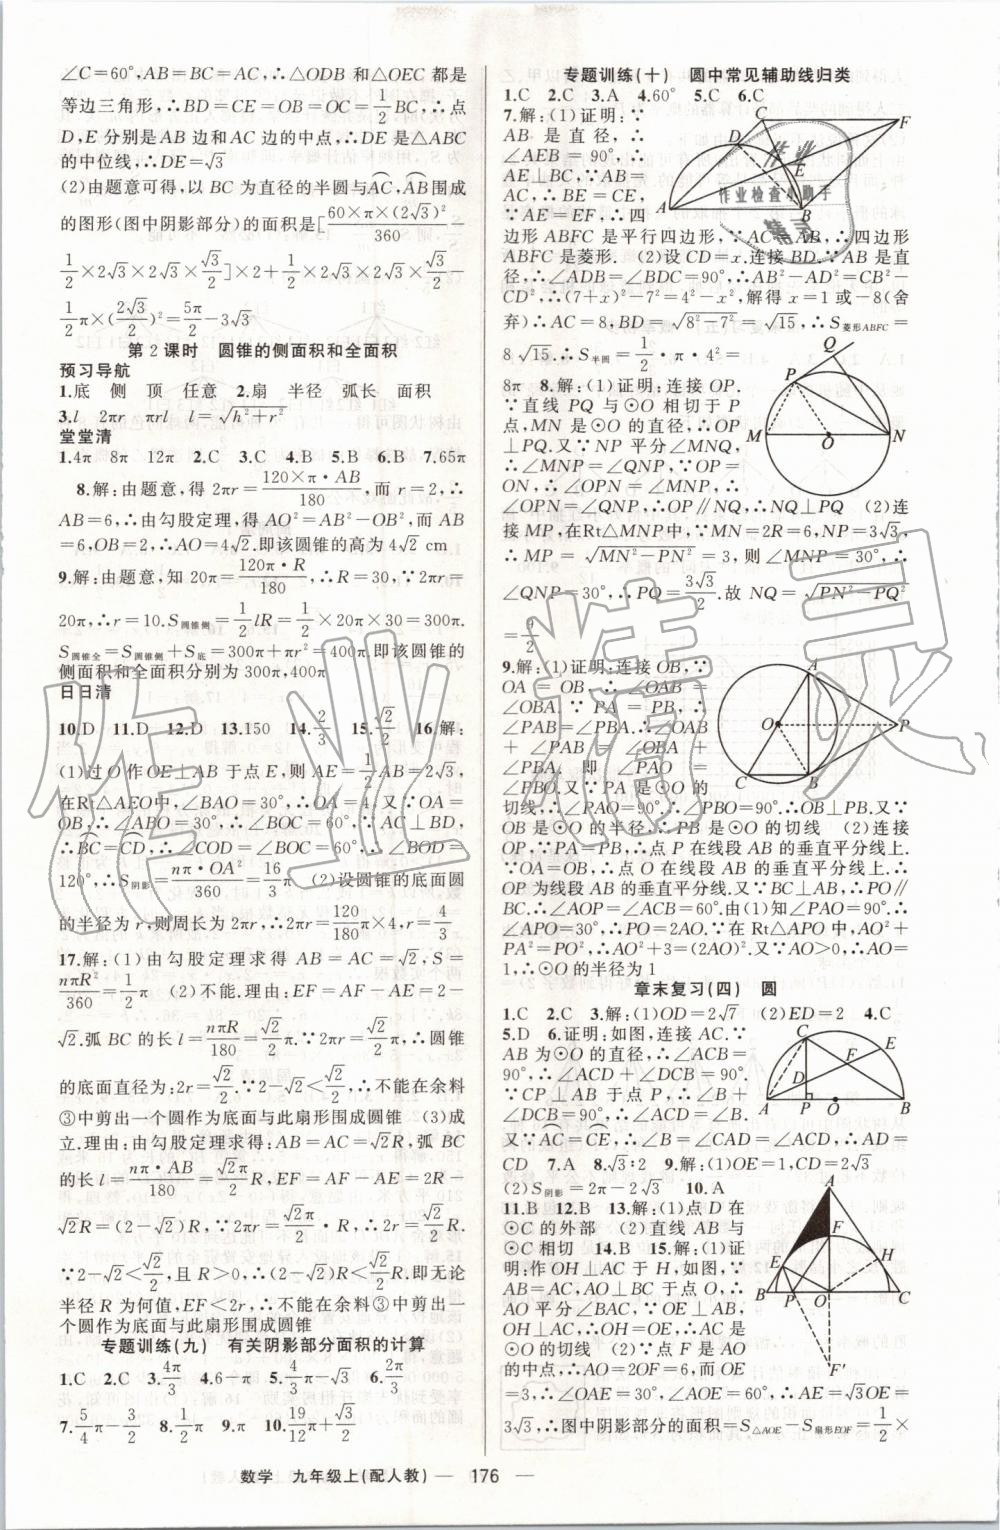 ∠C=60°,AB=BC=AC,∴△ODB 和△OEC 都是
等边三角形,∴BD=CE=OB=OC=1/2BC,∴点
D,E 分别是 AB 边和 AC 边的中点,∴DE 是△ABC
的中位线,∴DE=√3
(2)由题意可得,以 BC 为直径的半圆与⌒AC,⌒AB围成
的图形(图中阴影部分)的面积是[60×π×(2√3)²/360 −
1/2×2√3×2√3×√3/2]×2+1/2×2√3×2√3×√3/2−
1/2π×(2√3/2)²=5π/2−3√3
第 2 课时 圆锥的侧面积和全面积
预习导航
1.底 侧 顶 任意 2.扇 半径 弧长 面积
3.l 2πr πrl l=√(h²+r²)
堂堂清
1.4π 8π 12π 2.C 3.C 4.B 5.B 6.B 7.65π
8.解:由题意,得 2πr=120×π·AB/180,而 r=2,∴
AB=6,∴由勾股定理,得 AO²=AB²−OB²,而 AB
=6,OB=2,∴AO=4√2.即该圆锥的高为 4√2 cm
9.解:由题意,知 20π=120π·R/180,∴R=30,∵2πr=
20π,∴r=10.S圆锥侧=1/2lR=1/2×20π×30=300π.
S圆锥全=S圆锥侧+S底=300π+πr²=400π,即该圆锥的
侧面积和全面积分别为 300π,400π
日日清
10.D 11.D 12.D 13.150 14.2/3 15.√2/2 16.解:
(1)过 O 作 OE⊥AB 于点 E,则 AE=1/2AB=2√3,
在Rt△AEO中,∠BAO=30°,∴OA=4.又∵OA=
OB,∴∠ABO=30°,∴∠BOC=60°,∵AC⊥BD,
∴⌒BC=⌒CD,∴∠COD=∠BOC=60°,∴∠BOD=
120°,∴S阴影=nπ·OA²/360=16/3π (2)设圆锥的底面圆
的半径为 r,则周长为 2πr,∴2πr=120/180π×4,r=4/3
17.解:(1)由勾股定理求得 AB=AC=√2,S=
nπR²/360=1/2π (2)不能.理由:EF=AF−AE=2−
√2.弧 BC 的长 l=nπR/180=√2/2π,∵2πr=√2/2π,∴圆锥
的底面直径为:2r=√2/2,∵2−√2<√2/2,∴不能在余料
③中剪出一个圆作为底面与此扇形围成圆锥 (3)成
立.理由:由勾股定理求得:AB=AC=√2R,弧 BC
的长 l=nπ·AB/180=√2π/2R,∵EF=AF−AE=2R−
√2R=(2−√2)R,∵2πr=√2π/2R,∴2r=√2/2R.
∵2−√2<√2/2,∴(2−√2)R<√2/2R.即无论
半径 R 为何值,EF<2r,∴不能在余料③中剪出一
个圆作为底面与此扇形围成圆锥
专题训练(九) 有关阴影部分面积的计算
1.C 2.C 3.4π/3 4.6−π 5.4π/3−√3 6.2π/3
7.5/4π−3/2 8.π 9.π 10.19/12π+√3/2
专题训练(十) 圆中常见辅助线归类
1.C 2.C 3.A 4.60° 5.C 6.C
7.解:(1)证明:∵
AB 是直径,∴
∠AEB=90°,∴
AE⊥BC,∵AB=
AC,∴BE=CE,
∵AE=EF,∴四
边形 ABFC 是平行四边形,∵AC=AB,∴四边形
ABFC 是菱形. (2)设 CD=x.连接 BD.∵AB 是直
径,∴∠ADB=∠BDC=90°,∴AB²−AD²=CB²−
CD²,∴(7+x)²−7²=4²−x²,解得 x=1 或−8(舍
弃)∴AC=8,BD=√(8²−7²)=√15,∴S菱形ABFC=
8√15.∴S半圆=1/2·π·4²=
8π 8.解:(1)证明:连接 OP.
∵直线 PQ 与⊙O 相切于 P
点,MN 是⊙O 的直径,∴OP
⊥PQ.又∵NP 平分∠MNQ,
∴∠MNP=∠QNP,∵OP=
ON,∴∠OPN=∠MNP,∴
∠OPN=∠QNP,∴OP∥NQ,∴NQ⊥PQ (2)连
接 MP,在Rt△MNP 中,∵MN=2R=6,NP=3√3,
∴MP=√(MN²−PN²)=3,则∠MNP=30°,∴
∠QNP=30°,∴PQ=3√3/2.故 NQ=√(PN²−PQ²)
=9/2
9.解:(1)证明:连接 OB,∵
OA=OB,∴∠OAB=
∠OBA.∵PA=PB,∴
∠PAB=∠PBA,∴∠OAB
+∠PAB=∠OBA+
∠PBA.即∠PAO=
∠PBO.又∵PA 是⊙O 的
切线,∴∠PAO=90°,∴∠PBO=90°.∴OB⊥PB.又∵
OB 是⊙O 的半径,∴PB 是⊙O 的切线 (2)连接
OP,∵PA=PB,∴点 P 在线段 AB 的垂直平分线上.
∵OA=OB,∴点 O 在线段 AB 的垂直平分线上.∴
OP 为线段 AB 的垂直平分线.又∵BC⊥AB,∴PO∥
BC.∴∠AOP=∠ACB=60°.由(1)知∠PAO=90°,
∴∠APO=30°,∴PO=2AO.∵在 Rt△APO 中,AO²+
PA²=PO²,∴AO²+3=(2AO)².又∵AO>0,∴AO=
1,∴⊙O 的半径为 1
章末复习(四) 圆
1.C 2.C 3.解:(1)OD=2√7 (2)ED=2 4.C
5.D 6.证明:如图,连接 AC.∵
AB 为⊙O 的直径,∴∠ACB=
90°,∴∠ACD+∠DCB=90°.
∵CP⊥AB 于点 P,∴∠B+
∠DCB=90°,∴∠B=∠ACD.
又∵⌒AC=⌒CE,∴∠B=∠CAD=∠ACD,∴AD=
CD 7.A 8.√3∶2 9.解:(1)OE=1,CD=2√3
(2)S阴影=2π−2√3 10.A
11.B 12.B 13.解:(1)点 D 在
⊙C 的外部 (2)直线 AB 与
⊙C 相切 14.B 15.解:(1)证
明:作 OH⊥AC 于 H,如图,∵
AB=AC,AO⊥BC 于点 O,∴
AO平分∠BAC,∵OE⊥AB,OH
⊥AC,∴OH=OE,∴AC 是⊙O
的切线 (2)∵点 F 是 AO
的中点,∴AO=2OF=6,而 OE
=3,∴∠OAE=30°,∠AOE=60°,∴AE=√3OE=
3√3,∴图中阴影部分的面积=S△AOE−S扇形EOF=1/2×
数学 九年级上(配人教) — 176 —